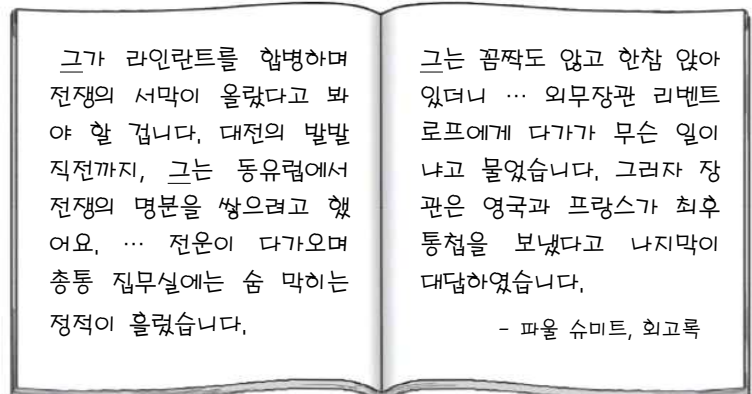 그가 라인란트를 합병하며
전쟁의 서막이 올랐다고 봐
야 할 겁니다. 대전의 발발
직전까지, 그는 동유럽에서
전쟁의 명분을 쌓으려고 했
어요. … 전운이 다가오며
총통 집무실에는 숨 막히는
정적이 흘렀습니다.
그는 꼼짝도 않고 한참 앉아
있더니 … 외무장관 리벤트
로프에게 다가가 무슨 일이
냐고 물었습니다. 그러자 장
관은 영국과 프랑스가 최후
통첩을 보냈다고 나지막이
대답하였습니다.
- 파울 슈미트, 회고록